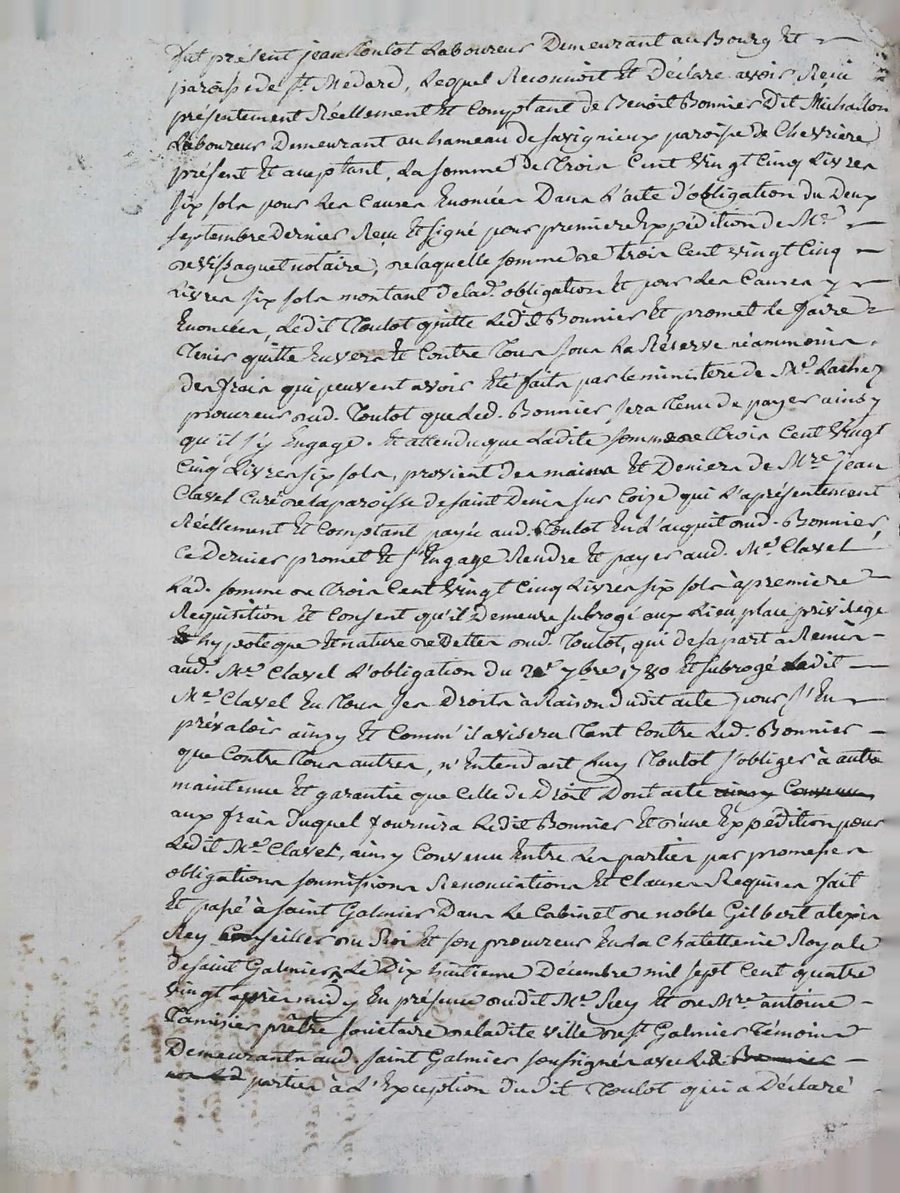 fut présent jean Toulot Laboureur Demeurant au Bourg Et
paroisse de st. Medard, Lequel Reconnoit Et Déclare avoir Reçu
présentement Réellement Et Comptant de Benoit Bonnier Dit Michallon
Laboureur Demeurant au hameau de savignieux paroisse de Chevriere
présent Et aceptant, La somme de Trois Cent vingt Cinq Livres
six sols pour Les Causes Enoncées Dans L'acte d'obligation du Deux
septembre Dernier Reçu Et signé pour premiere Expédition de Me.
devissaguet notaire, de laquelle somme de trois Cent vingt Cinq
Livres six sols montant de lad. obligation Et pour Les Causes y
Enoncées, Ledit Toulot quitte Ledit Bonnier Et promet Le faire
Tenir quitte Envers Et Contre Tous sous La Réserve néammoins
des frais qui peuvent avoir Eté faits par le ministere de Me. Lachez
procureur dud. Toulot que Led. Bonnier sera Tenu de payer ainsy
qu'il s'y Engage. Et attendu que Ladite somme de Trois Cent vingt
Cinq Livres six sols, provient des mains Et Deniers de Mre. jean
Clavel Curé de la paroisse de saint Denis sur Coise qui L'a présentement
Réellement Et Comptant payée aud. Toulot En L'acquit dud. Bonnier
Ce Dernier promet Et s'Engage Rendre Et payer aud. Me. Clavel
Lad. somme de Trois Cent vingt Cinq Livres six sols à premiere
Requisition Et Consent qu'il Demeure subrogé aux Lieu, place privilege
Et hypoteque Et nature de Dettes dud. Toulot, qui de sa part a Remis
aud. Me. Clavel L'obligation du 2e. 7bre 1780 Et subrogé Ledit
Me. Clavel En Tous ses Droits à Raison dudit acte pour s'En
prévaloir ainsy Et Comm'il avisera Tant Contre Led. Bonnier
que Contre Tous autres, n'Entendant Luy Toulot s'obliger à autre
maintenue Et garantie que Celle de Droit Dont acte ainsy Convenu
aux frais Duquel fournira Ledit Bonnier Et d'une Expédition pour
Ledit Me. Clavel, ainsy Convenu Entre Les parties par promesses
obligations soumissions Renonciations Et Clauses Requises fait
Et passé à saint Galmier Dans Le Cabinet de noble Gilbert alexis
Rey Conseiller du Roi Et son procureur En La Chatellenie Royale
de saint Galmier Le Dix huitieme Décembre mil sept Cent quatre
vingt après midy En présence dudit Me. Rey Et de Mre. antoine
Tamisier prêtre sociétaire de ladite ville de st. Galmier Témoins
Demeurants aud. saint Galmier soussignés avec Led. Bonnier
non Led parties à L'Exception dudit Toulot qui a Déclaré